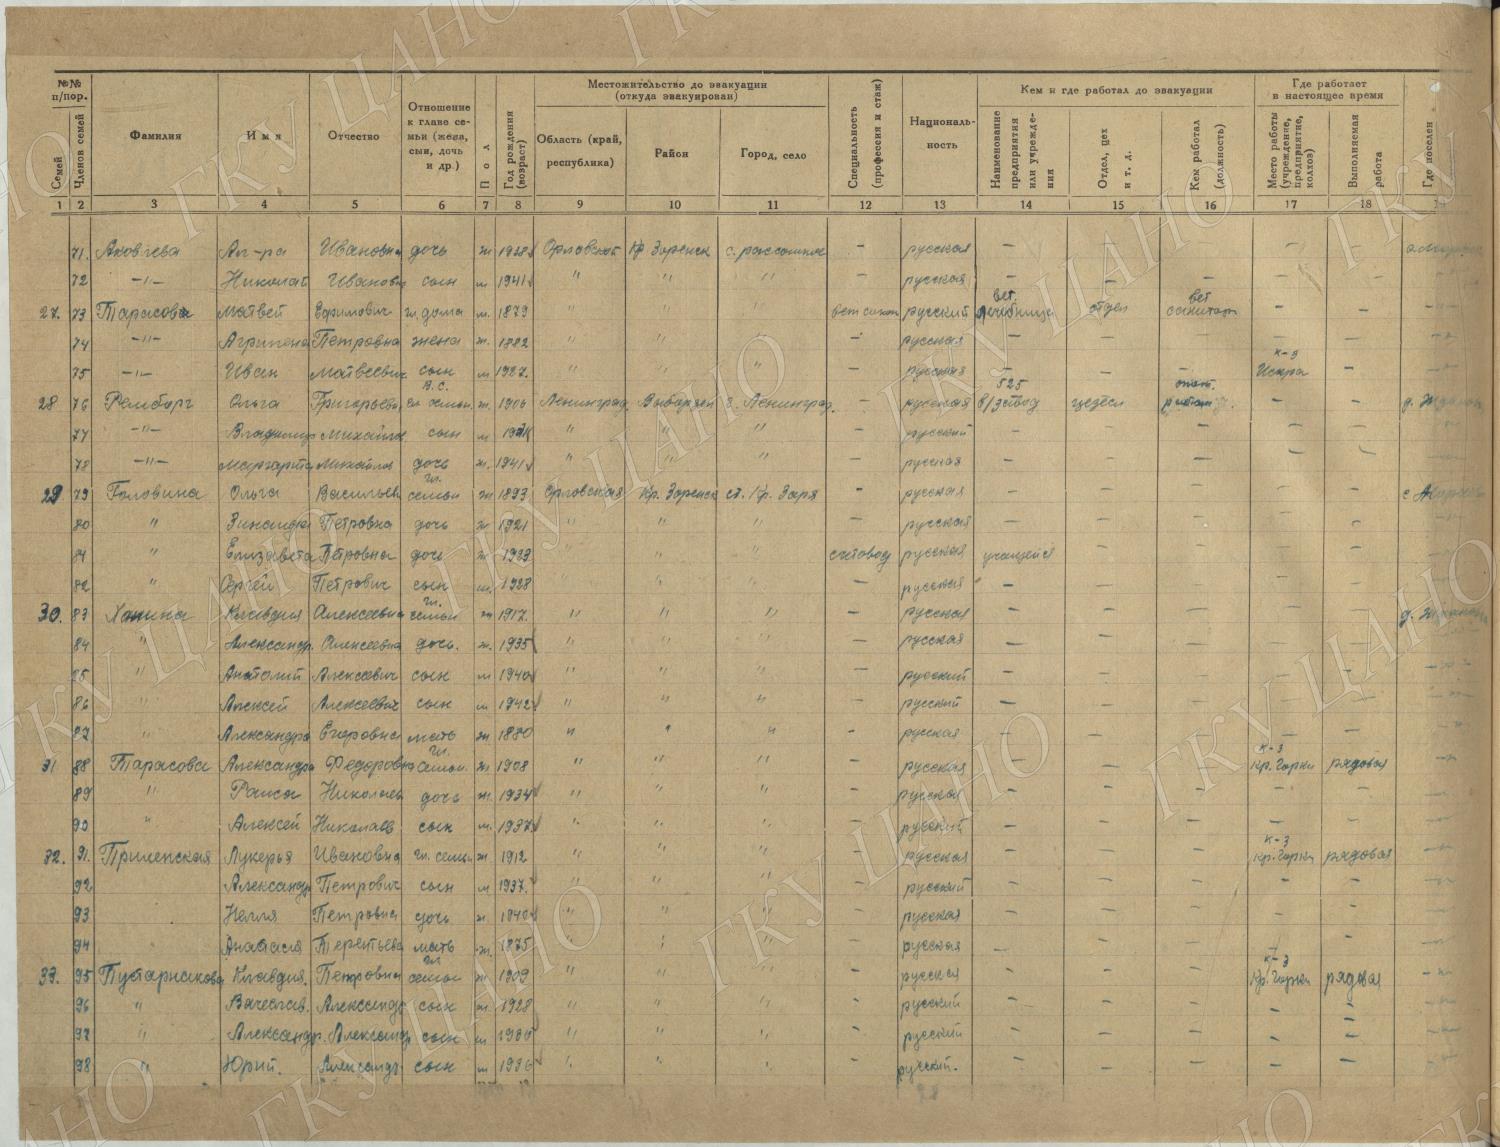 №№ п/пор. Местожительство до эвакуации (откуда эвакуирован) Кем и где работал до эвакуации Где работает в настоящее время
Семей Членов семей Фамилия Имя Отчество Отношение к главе семьи (жена, сын, дочь и др.) Пол Год рождения (возраст) Область (край, республика) Район Город, село Специальность (профессия и стаж) Национальность Наименование предприятия или учреждения Отдел, цех и т. д. Кем работал (должность) Место работы (учреждение, предприятие, колхоз) Выполняемая работа Где поселен
1 2 3 4 5 6 7 8 9 10 11 12 13 14 15 16 17 18
71. Яковлева Ал-ра Ивановна дочь ж 1938 Орловской Кр Зоренск – русская – – –
72 —"— Николай Иванов сын м 1941 " " " – русская – – – – –
27. 73 Тарасова Матвей Ефимович гл. дома м. 1879 " " " русский вет лечебница отдел вет санитар – –
74 —"— Агрипена Петровна жена ж. 1882 " " " – русская – – – –
75 —"— Иван Матвеевич сын в.с. м 1927. " " – русская – – – к-з Искра –
28 76 Рембарг Ольга Григорьева гл семьи ж. 1906 Ленинград г. Ленинград. – русская 525 в/завод – –
77 —"— Владимир Михайлов сын м " " " – русский – – – – –
78 —"— Маргарита Михайлов дочь ж. 1941 " " " – русская – – – – –
29 79 Головина Ольга Васильев гл. семьи ж 1893 Орловская Кр. Зоренск ст. Кр. Заря – русская – – – – –
80 " Зинаида Петровна дочь ж 1921 " " " – русская – – – – –
81 " Елизавета Петровна дочь ж 1923 " " " счетовод русская учащейся – – – –
82 " Сергей Петрович сын м. 1928 " " – русская – – – – –
30. 83 Ханина Клавдия Алексеевна гл. семьи ж 1917. " " " – русская – – – – –
84 " Александр. Алексеевна дочь. ж. 1935 " " " – русская – – – – –
85 " Анатолий Алексеевич сын м 1940 " " " – русский – – – – –
86 " Алексей Алексеевич сын м 1942 " " " русский – – – – –
87 " Александра Егоровна мать ж 1880 " " " – русская – – – – –
31 88 Тарасова Александра Федоровна гл. семьи. ж 1908 " " " – русская – – – к-з Кр. Горки рядовая
89 " Раиса Николаев дочь ж. 1934 " " " – русская – – – – –
90 " Алексей Николаев сын м. 1937 " " " – русский – – – – –
32. 91. Приленская Лукерья Ивановна гл. семьи ж. 1912 " " " – русская – – – к-з Кр. Горки рядовая
92 Александр Петрович сын м 1937. " " " – русский – – – – –
93 Нелля Петровна дочь ж. 1940 " " " – русская – – – – –
94 Анастасия Терентьева мать ж. 1875 " " " – русская – – – – –
33. 95 Пустарнакова Клавдия. Петровна гл. семьи ж 1909 " " " – русская – – – к-з Кр. Горки рядовая
96 " Вячеслав. Александр сын м. 1928 " " " – русский – – – –
97 " Александр. Александр сын м " " " – русский – – – – –
98 " Юрий. Александр сын м 1936 " " " – русский. – – – – –
ГКУ ЦАНО